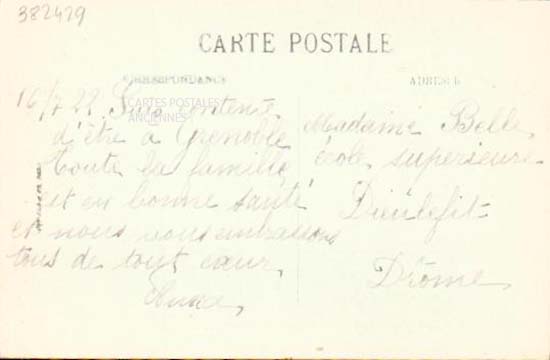 382429
CARTE POSTALE
CORRESPONDANCE
ADRESSE
CARTES POSTALES
ANCIENNES
16/7 22 Suis contente
d'être à Grenoble
toute la famille
est en bonne santé
et nous vous embrassons
tous de tout cœur,
Madame Belle,
école supérieure
Dieulefit
Drôme,